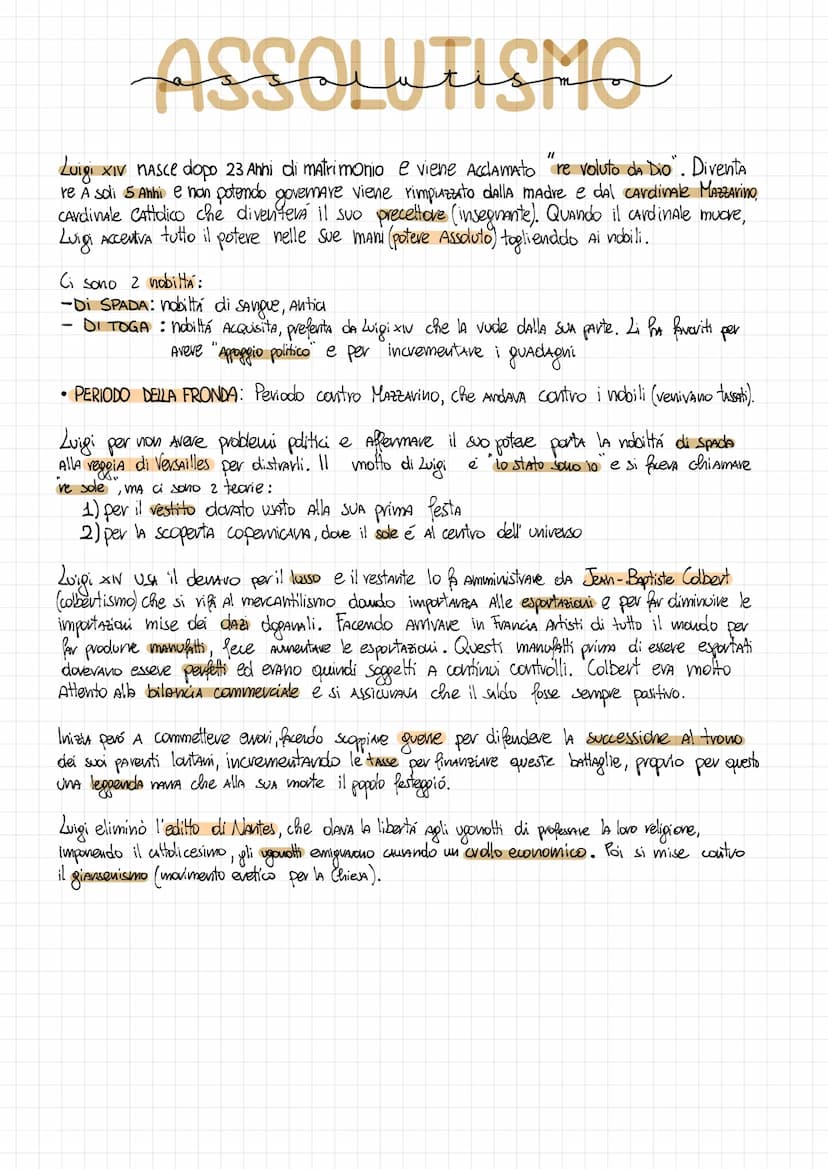 ASSOLUTISMO
assolutismo
Luigi XIV nasce dopo 23 Anni di matrimonio e viene Acclamato "re voluto da Dio". Diventa
re A soli 5 Anni e non potendo governare viene rimpiazzato dalla madre e dal cardinale Mazzarino,
cardinale cattolico che diventerá il suo precettore (insegnante). Quando il cardinale muore,
Luigi Accentra tutto il potere nelle sue mani (potere Assoluto) toglienddo Ai nobili.
Ci sono 2 nobiltá:
- Di SPADA: nobiltá di sangue, Antica
- DI TOGA : nobiltá Acquisita, preferita da Luigi XIV che la vuole dalla sua parte. Li ha favoriti per
Avere "Appoggio politico" e per incrementare i guadagni
• PERIODO DELLA FRONDA: Periodo contro Mazzarino, che Andava contro i nobili (venivano tassati).
Luigi per non Avere problemi politici e Affermare il suo potere porta la nobiltá di spada
Alla reggia di Versailles per distrarli. Il motto di Luigi é "lo stato sono io" e si faceva chiamare
"re sole", ma ci sono 2 teorie:
1) per il vestito dorato usato Alla sua prima festa
2) per la scoperta copernicana, dove il sole é Al centro dell' universo
Luigi XIV usa il denaro per il lusso e il restante lo fa Amministrare da Jean-Baptiste Colbert
(colbertismo) che si rifá Al mercantilismo dando importanza Alle esportazioni e per far diminuire le
importazioni mise dei dazi doganali. Facendo Arrivare in Francia Artisti di tutto il mondo per
far produrre manufatti, fece Aumentare le esportazioni. Questi manufatti prima di essere esportati
dovevano essere perfetti ed erano quindi soggetti A continui controlli. Colbert era molto
Attento Alla bilancia commerciale e si Assicurava che il saldo fosse sempre positivo.
Inizia peró A commettere errori, facendo scoppiare guerre per difendere la successione Al trono
dei suoi parenti lontani, incrementando le tasse per finanziare queste battaglie, proprio per questo
una leggenda narra che Alla sua morte il popolo festeggió.
Luigi eliminò l'editto di Nantes, che dava la libertá Agli ugonotti di professare la loro religione,
imponendo il cattolicesimo, gli ugonotti emigrarono causando un crollo economico. Poi si mise contro
il giansenismo (movimento eretico per la Chiesa).